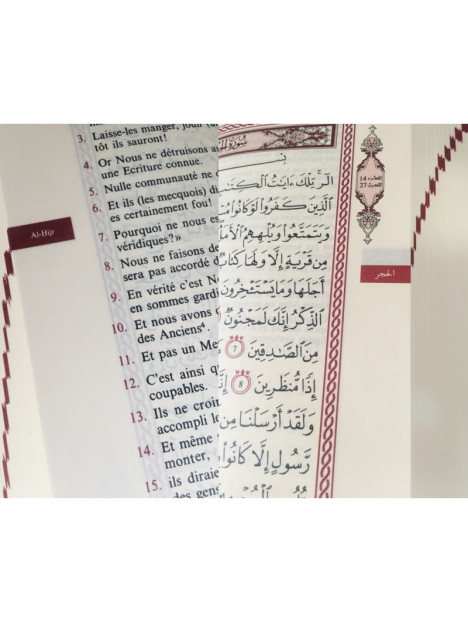 Al-Hijr
3. Laisse-les manger, jouir (d
tôt ils sauront!
4. Or Nous ne détruisons au
une Ecriture connue.
5. Nulle communauté ne d
6. Et ils (les mecquois) di
es certainement fou!
7. Pourquoi ne nous es
véridiques?»
8. Nous ne faisons de
sera pas accordé d
9. En vérité c'est No
en sommes gardi
10. Et nous avons
des Anciens⁴.
11. Et pas un Me
12. C'est ainsi q
coupables.
13. Ils ne croir
accompli le
14. Et même
monter,
15. ils diraie
des gens
الٓر ۚ تِلْكَ ءَايَٰتُ ٱلْكِتَـ
ٱلَّذِينَ كَفَرُوا۟ لَوْ كَانُوا۟
وَيَتَمَتَّعُوا۟ وَيُلْهِهِمُ ٱلْأَمَـ
مِن قَرْيَةٍ إِلَّا وَلَهَا كِتَا
أَجَلَهَا وَمَا يَسْتَـْٔخِرُونَ
ٱلذِّكْرُ إِنَّكَ لَمَجْنُونٌ
مِنَ ٱلصَّٰدِقِينَ 7
إِذًا مُّنظَرِينَ 8 إِنَّا
وَلَقَدْ أَرْسَلْنَا مِن
رَّسُولٍ إِلَّا كَانُوا۟
الجزء 14
الحزب 27
الحجر